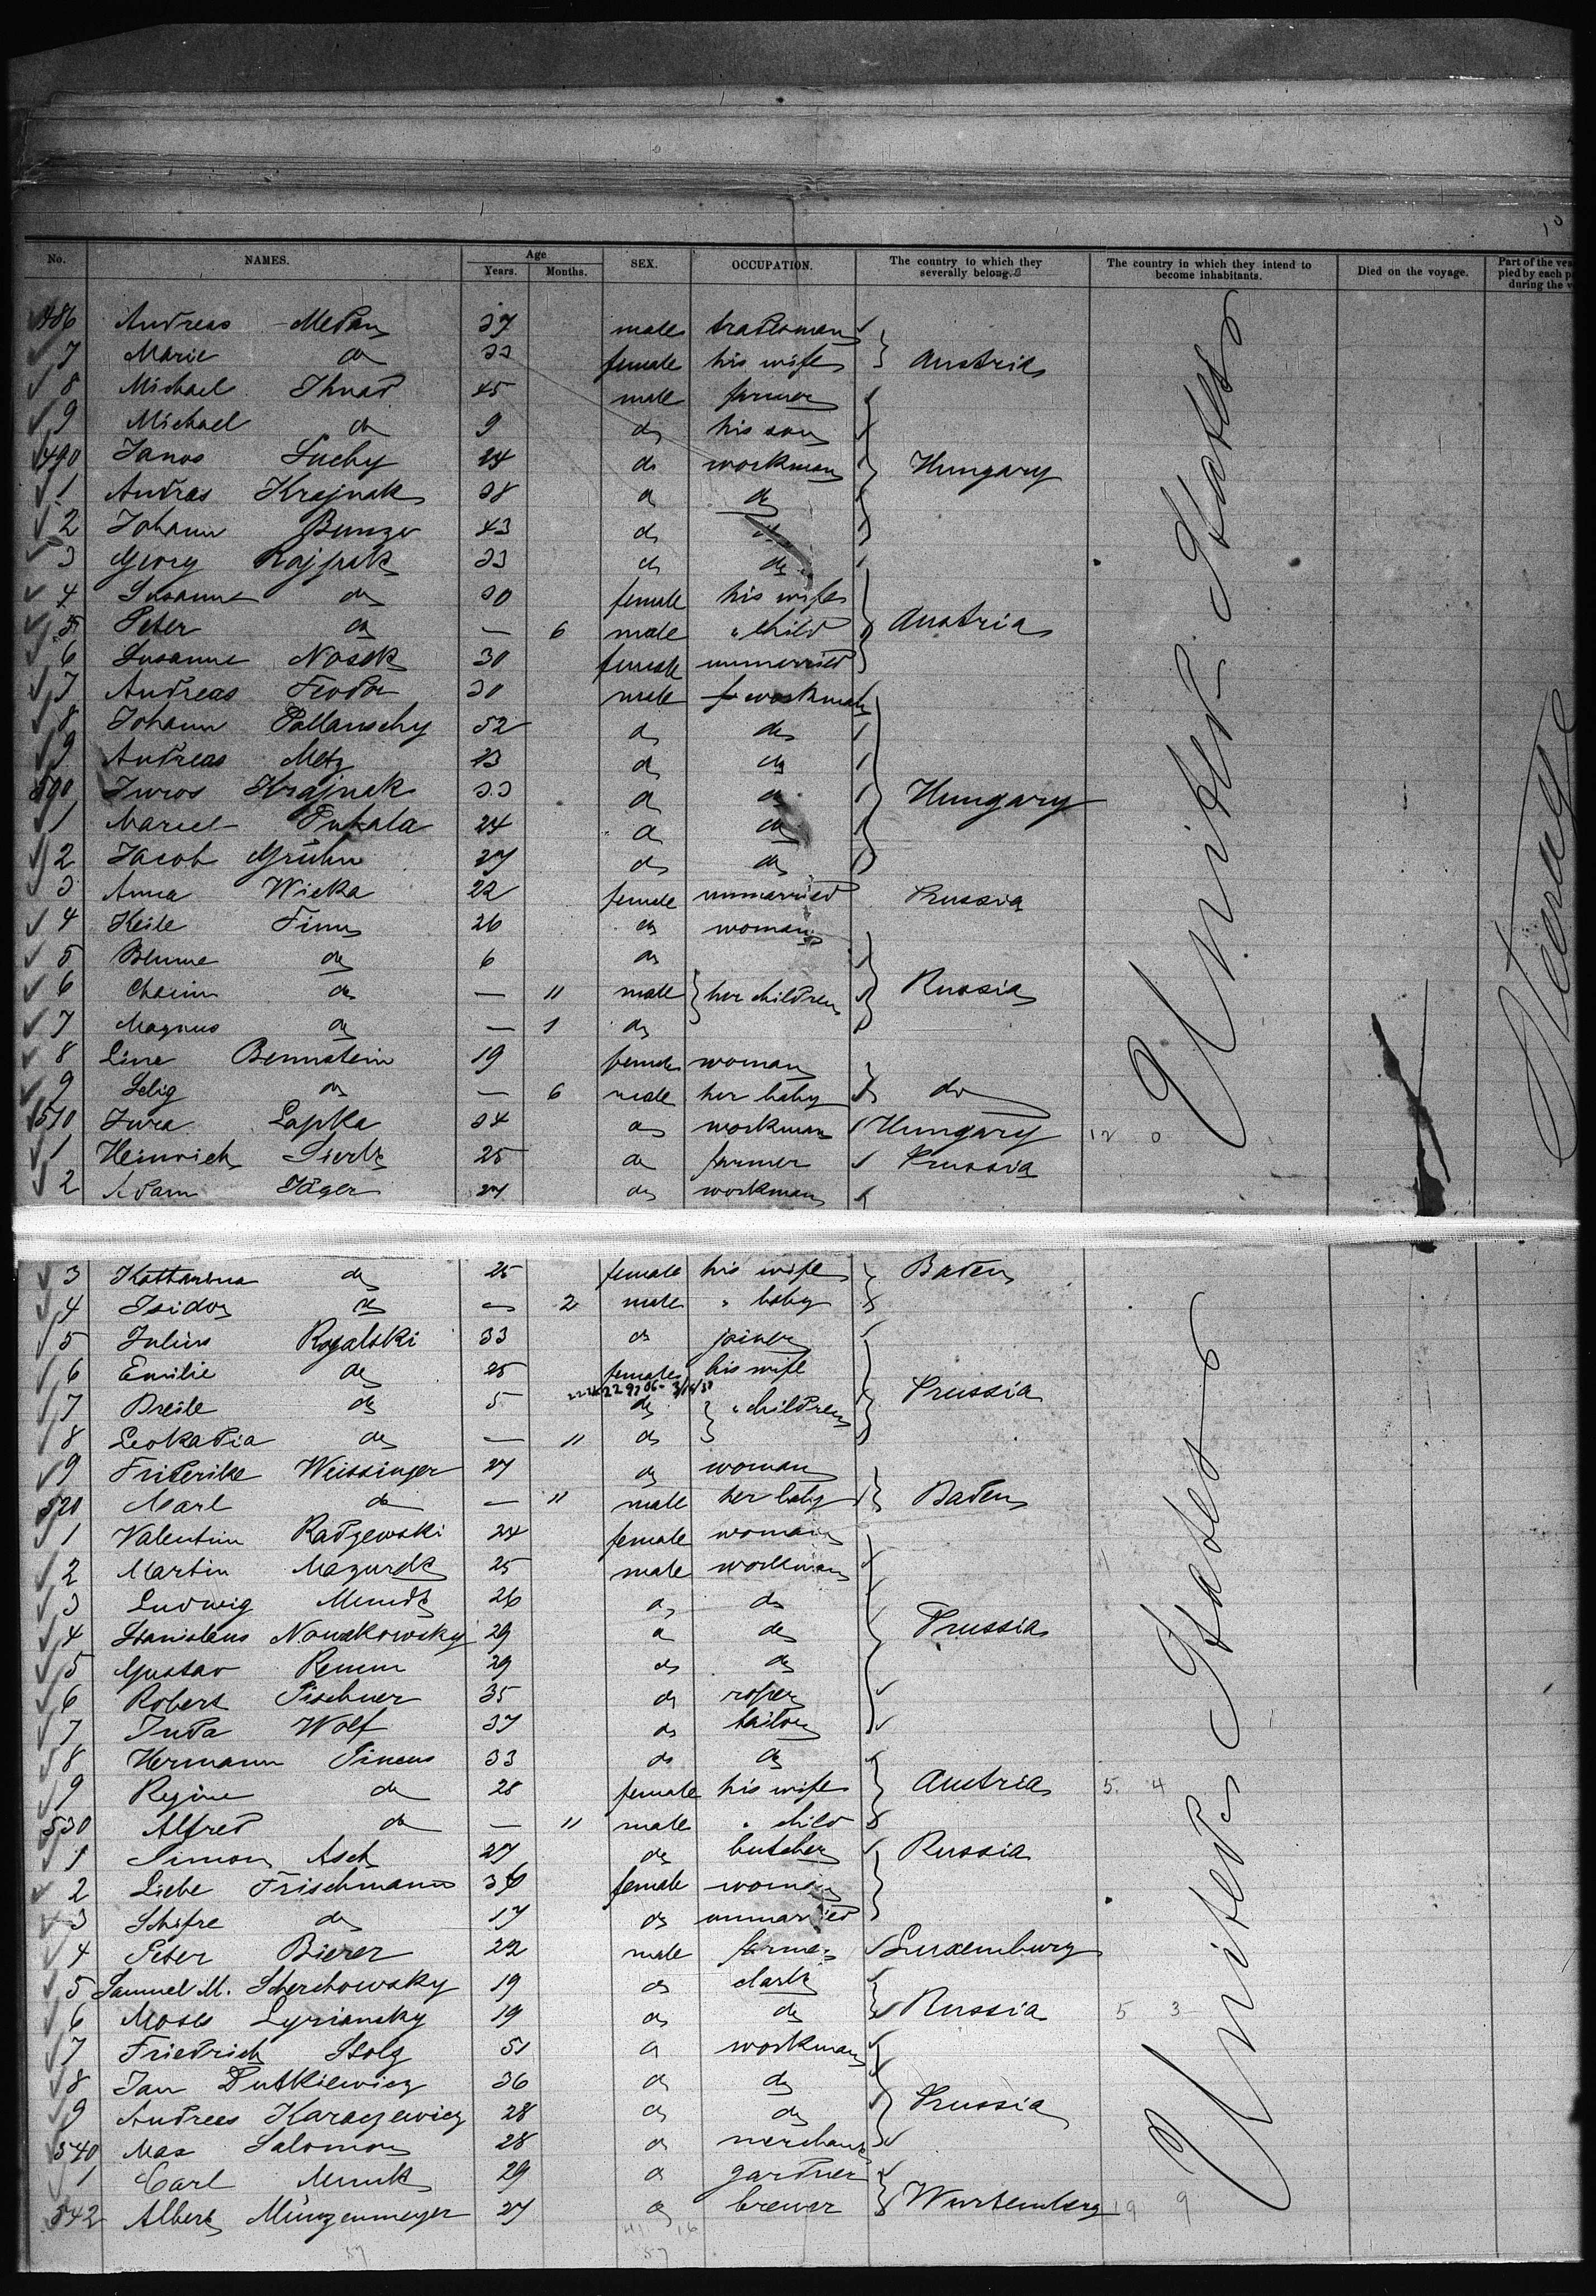 10
No. NAMES. Age SEX. OCCUPATION. The country to which they severally belong. The country in which they intend to become inhabitants. Died on the voyage. Part of the ves
Years. Months. pied by each p
during the v
486 Andreas Medan 37 male tradesman
7 Marie do 33 female his wife Austria
8 Michael Ihnat 45 male farmer
9 Michael do 9 do his son
490 Janos Suchy 24 do workman Hungary
1 Andras Krajnak 38 do do
2 Johann 43 do do
3 Georg 33 do do
4 Susanne do 30 female his wife
5 Peter do — 6 male " child Austria
6 Susanne Nosek 30 female unmarried
7 Andreas Feodor 30 male workman
8 Johann Pollanschy 52 do do
9 Andreas Metz 23 do do
500 Juros Krajnak 33 do do Hungary
1 Pukala 24 do do
2 Jacob Grühn 27 do do
3 Anna Wicka 22 female unmarried Prussia
4 26 do woman
5 Blume do 6 do
6 Chaim do — 11 male her children Russia
7 Magnus do — 1 do
8 Line Bernstein 19 female woman
9 Selig do — 6 male her baby do
510 Jura Lapka 34 do workman Hungary 12 0
1 Heinrich 25 do farmer Prussia
2 Adam Jäger 27 do workman
United States
Steerage
3 Katharina do 25 female his wife Baden
4 Isidor do — 2 male " baby
5 Julius Rogalski 33 do joiner
6 Emilie do 25 female his wife
7 do 5 do " children Prussia
8 Leokadia do — 11 do
9 Friderike Weissinger 27 do woman
520 Karl do — 11 male her baby Baden
1 Valentin Radzewski 24 female woman
2 Martin Mazurek 25 male workman
3 Ludwig Mundt 26 do do
4 Stanislaus Nowakowsky 29 do do Prussia
5 Gustav 29 do do
6 Robert Pischner 35 do roper
7 Juda Wolf 37 do tailor
8 Hermann Pincus 33 do do
9 Regine do 28 female his wife Austria 5. 4
530 Alfred do — 11 male " child
1 Simon Asch 27 do butcher Russia
2 Liebe Frischmann 36 female woman
3 Schifre do 17 do unmarried
4 Peter Bierer 22 male farmer Luxemburg
5 Samuel M. Scherchowsky 19 do clark
6 Moses Lyriansky 19 do do Russia 5 3
7 Friedrich Stolz 51 do workman
8 Jan Dutkiewicz 36 do do
9 Andrees Karaczewicz 28 do do Prussia
540 Max Salomon 28 do merchant
1 Carl Munk 29 do gardner
542 Albert Münzenmeyer 27 do brewer Wurtemberg 19 9
United States
41 16
57 57